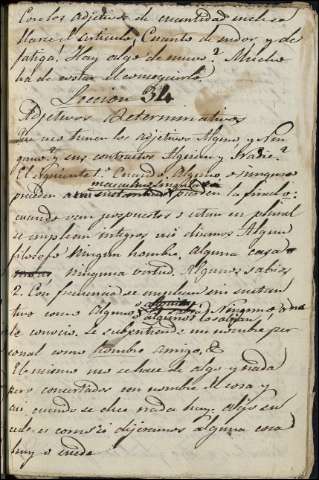 Con los adjetivos de cuantidad suele sobr
llarse el articulo. Cuanto de sudor, y de
fatiga! Hay algo de nuevo? Mucho
ha de costar el conseguirlo.
Leccion 34
Adjetivos Determinativos
Que me tienen los adjetivos Alguno y Nin
guno? y sus contractos Alguien y Nadie?
El siguiente: 1. Cuando Alguno o ninguno
masculino singular
pueden a un sustantivo pierden la final o:
cuando van pospuestos o estan en plural
se emplean integros asi diremos Algun
filosofo Ningun hombre, alguna casa
ninguna virtud. Algunos sabios
2. Con frecuencia se emplean sin sustan
tivo como Alguno lo sabrá Ninguno
algunos lo saben
le conoce. Se subentiende un nombre per
sonal como hombre amigo, &
El mismo uso se hace de algo y nada
pero concertados con nombre de cosa y
asi cuando se dice nada hay. algo su
cede es como si dijeramos alguna cosa
hay o sucede